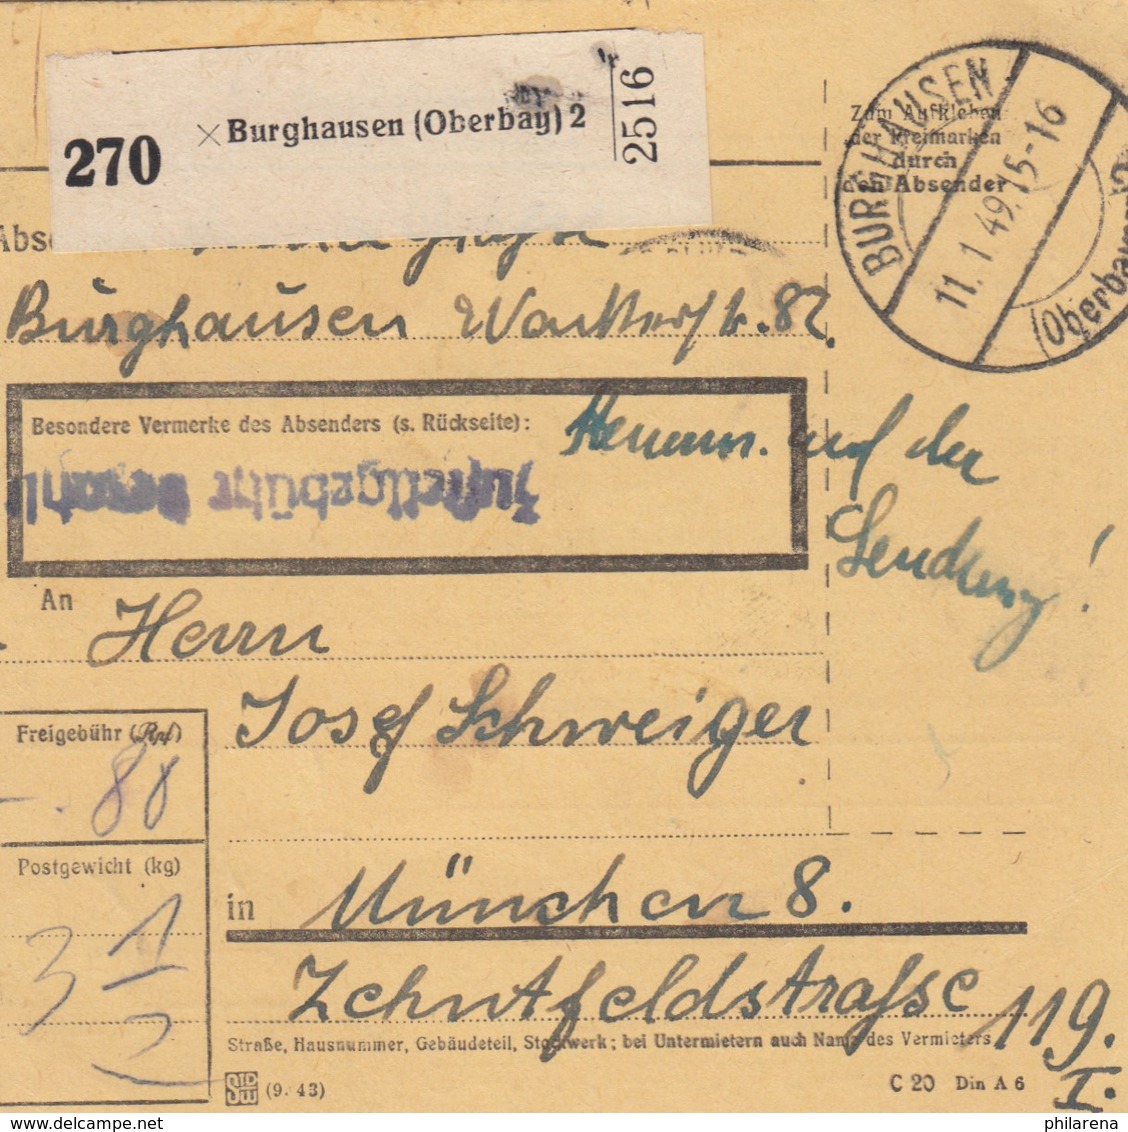 270
Burghausen (Oberbay) 2
2516
Zum Aufkleben
der Freimarken
durch
den Absender
BURGHAUSEN
11.1.49.15-16
(Oberbayern) 2
Abs
Burghausen Wackerstr. 82
Besondere Vermerke des Absenders (s. Rückseite):
Zustellgebühr bezahlt
auf der
Sendung!
An
Herrn
Josef Schweiger
Freigebühr (Rpf)
-.88
Postgewicht (kg)
3 1/2
in München 8.
Zehntfeldstrasse 119.
I.
Straße, Hausnummer, Gebäudeteil, Stockwerk; bei Untermietern auch Name des Vermieters
(9. 43)
C 20 Din A 6
philarena.com